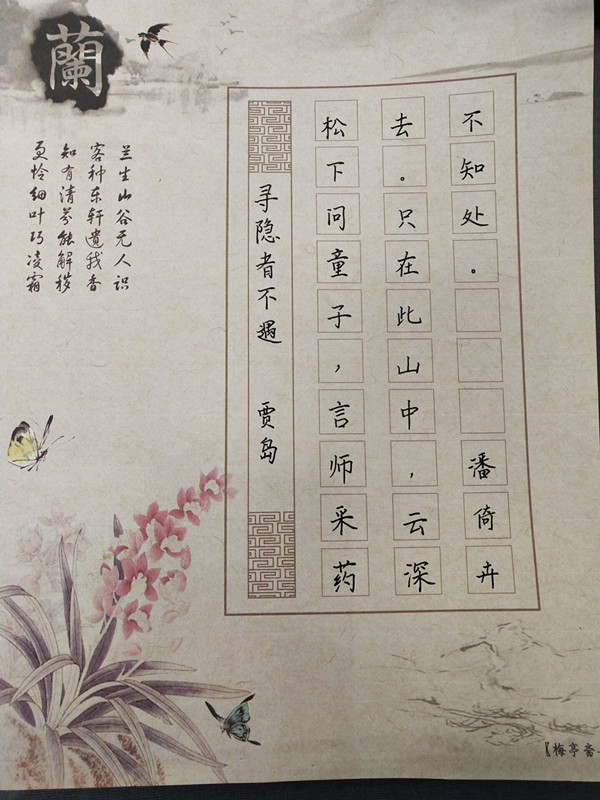 蘭
兰生山谷无人识
客种东轩遗我香
知有清芬能解秽
更怜细叶巧凌霜
寻隐者不遇 贾岛
松下问童子，言师采药
去。只在此山中，云深
不知处。 潘倚卉
【梅亭斋